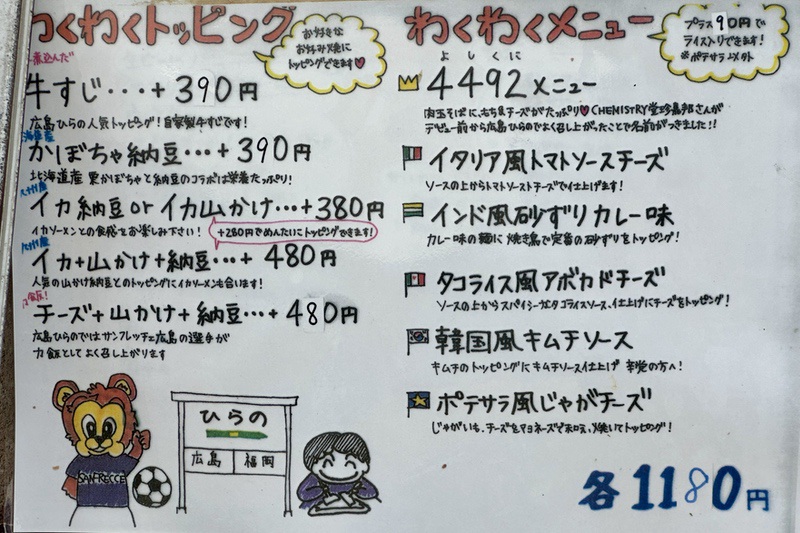 わくわくトッピング
お好きな
お好み焼に
トッピングできます♥
煮込んだ
牛すじ・・・+390円
広島ひらの人気トッピング!自家製牛すじです!
かぼちゃ納豆・・・+390円
北海道産 栗かぼちゃと納豆のコラボは栄養たっぷり!
イカ納豆orイカ山かけ・・・+380円
イカソーメンとの食感をお楽しみ下さい!
+280円でめんたいこトッピングできます!
イカ+山かけ+納豆・・・+480円
人気の山かけ納豆とのトッピングにイカソーメンも合います!
チーズ+山かけ+納豆・・・+480円
広島ひらのではサンフレッチェ広島の選手が
力飯としてよく召し上がります
SANFRECCE
ひらの
広島
福岡
わくわくメニュー
プラス90円で
ライス入りできます!
※ポテサラ以外
よしくに
4492メニュー
肉玉そばに、もち&チーズがたっぷり♥CHEMISTRY堂珍嘉邦さんが
デビュー前から広島ひらのでよく召し上がったことで名前がつきました!!
イタリア風トマトソースチーズ
ソースの上からトマトソースとチーズで仕上げます!
インド風砂ずりカレー味
カレー味の麺に焼き鳥で定番の砂ずりをトッピング!
タコライス風アボカドチーズ
ソースの上からスパイシーなタコライスソース、仕上げにチーズをトッピング!
韓国風キムチソース
キムチのトッピングにキムチソース仕上げ 辛党の方へ!
ポテサラ風じゃがチーズ
じゃがいも、チーズをマヨネーズで和え、焼いてトッピング!
各1180円